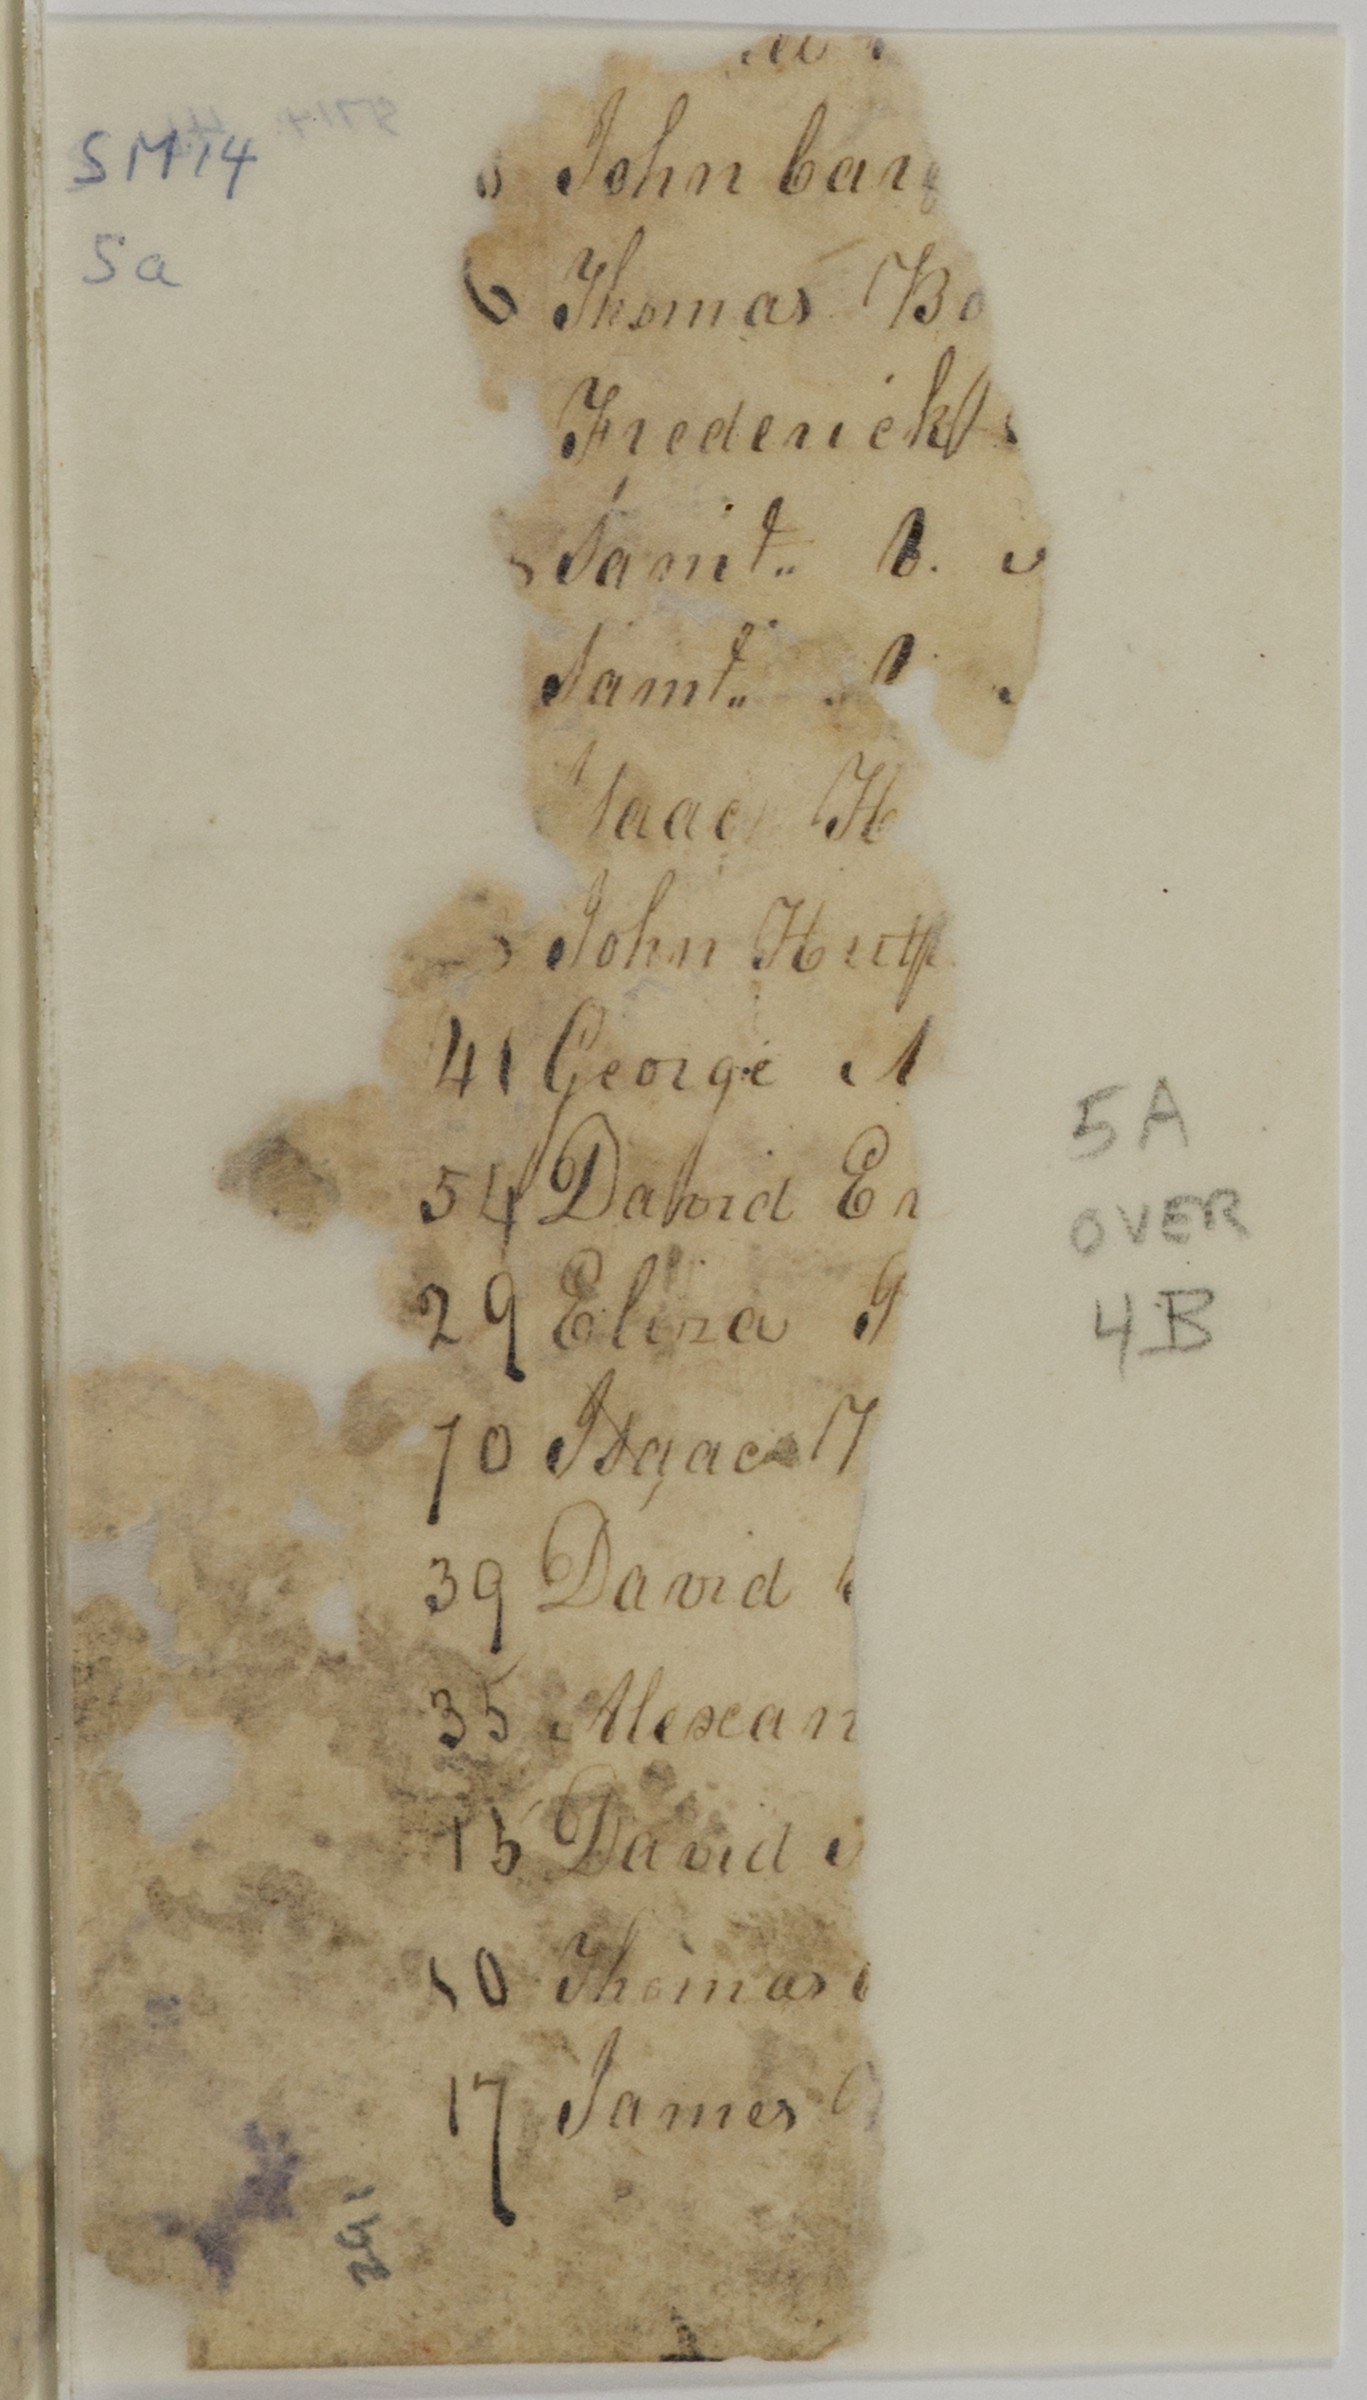 SM14
5a
John Carg
6 Thomas Bo
Frederick
Saml. C.
Saml.
Isaac H
John Hutp
41 George
54 David En
29 Eliza
70 Isaac
39 David
35 Alexan
15 David
50 Thomas
17 James
291
5A
OVER
4B